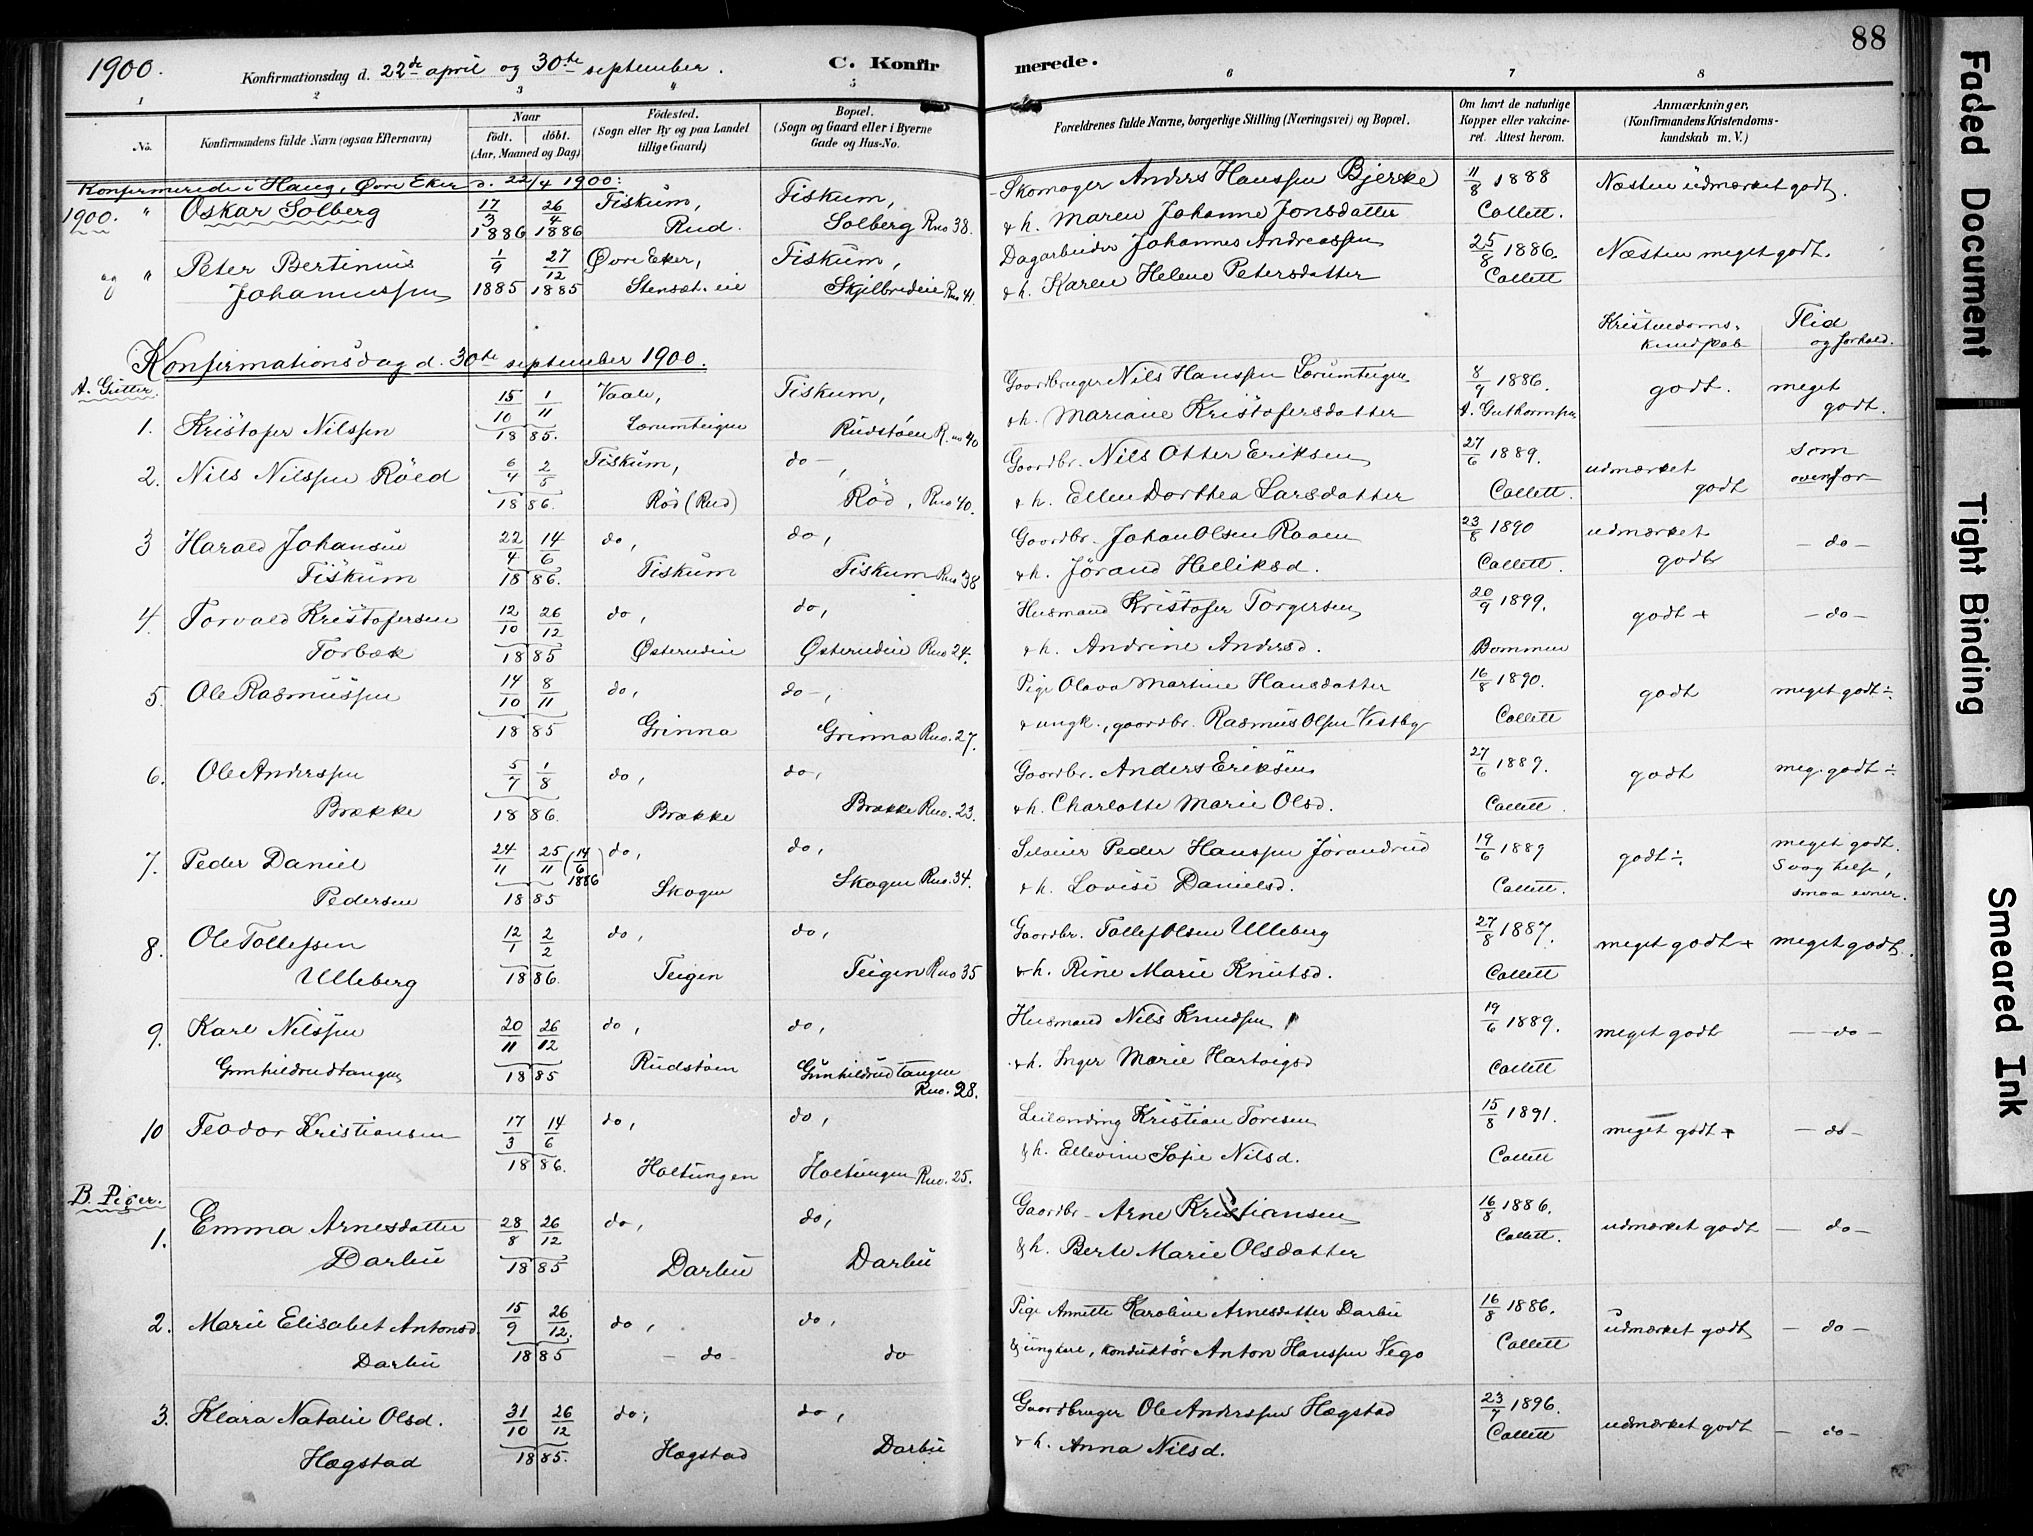 88
1900. Konfirmationsdag d. 22de april og 30te september. C. Konfirmerede.
1 2 3 " 5 6 7 8
No.
Konfirmandens fulde Navn (ogsaa Efternavn)
Naar
født. døbt.
(Aar, Maaned og Dag)
Fødested.
(Sogn eller By og paa Landet
tillige Gaard)
Bopæl.
(Sogn og Gaard eller i Byerne
Gade og Hus-No.
Forældrenes fulde Navne, borgerlige Stilling (Næringsvei) og Bopæl.
Om havt de naturlige
Kopper eller vakcine-
ret. Attest herom.
Anmærkninger,
(Konfirmandens Kristendoms-
kundskab m. V.)
Konfirmerede i Haug, Øvre Eker d. 22/4 1900:
1900. " Oskar Solberg 17/3 1886 26/4 1886 Fiskum, Rud. Fiskum, Solberg Rno 38. Skomager Anders Hanssen Bjerke
& h. Maren Johanne Jonsdatter 11/8 1888 Collett. Næsten udmærket godt.
og " Peter Bertinius Johannessen 1/9 1885 27/12 1885 Øvre Eker, Stensæt. eie Fiskum, Skjelbredeie Rno 41. Dagarbeider Johannes Andreassen
& h. Karen Helene Petersdatter 25/8 1886. Collett Næsten meget godt.
Konfirmationsdag d. 30te september 1900.
Kristendoms-
kundskab
Flid
og forhold.
A. Gutter
1. Kristofer Nilssen 15/10 1/11 1885. Vaale, Lørumteigen Fiskum, Rudstøen R. no 40 Gaardbruger Nils Hanssen Lørumteigen
& h. Mariane Kristofersdatter 8/9 1886. A. Guthormsen godt. meget godt.
2. Nils Nilssen Röed 6/4 2/5 1886. Fiskum, Röd (Rud) do —, Rød, Rno 40. Gaardbr. Nils Otter Eriksen
& h. Ellen Dorthea Larsdatter 27/6 1889. Collett. udmærket godt som ovenfor
3 Harald Johansen Fiskum 22/4 14/6 1886. do, Fiskum do, Fiskum Rno 38 Gaardbr. Johan Olsen Raaen
& h. Jørand Helliksd. 23/8 1890 Collett. udmærket godt — do —
4. Torvald Kristofersen Torbæk 12/10 26/12 1885 do, Østerudeie do, Østerudeie Rno 24. Husmand Kristofer Torgersen
& h. Andrine Andersd. 20/9 1899. Bommen godt + — do —
5. Ole Rasmussen 14/10 8/11 1885 do, Grinna do —, Grinna Rno. 27. Pige Olava Martine Hansdatter
& ungk., gaardbr. Rasmus Olsen Vestby 16/8 1890. Collett godt meget godt ÷
6. Ole Anderssen Brække 5/7 1/8 1886. do, Brække do, Brække Rno. 23. Gaardbr. Anders Eriksen
& h. Charlotte Marie Olsd. 27/6 1889. Collett. godt meg. godt ÷
7. Peder Daniel Pedersen 24/11 25/11 (14/6 1886) 1885 do, Skogen do, Skogen Rno. 34. Peder Hanssen Jørandrud
& h. Lovise Danielsd. 19/6 1889 Collett. godt ÷ meget godt.
Svag helse,
smaa evner.
8. Ole Tollefsen Ulleberg 12/1 2/2 1886. do, Teigen do, Teigen Rno 35 Gaardbr. Tollef Olsen Ulleberg
& h. Rine Marie Knutsd. 27/8 1887. Collett meget godt + meget godt.
9. Karl Nilssen Gunhildrudtangen 20/11 26/12 1885 do, Rudstøen do, Gunhildrudtangen Rno. 28. Husmand Nils Knudsen
& h. Inger Marie Hartvigsd 19/6 1889. Collett meget godt — do —
10 Teodor Kristiansen 17/3 14/6 1886. do, Holtungen do, Holtungen Rno. 25. Leilænding Kristian Toresen
& h. Ellevine Sofie Nilsd. 15/8 1891. Collett meget godt + — do —
B. Piger.
1. Emma Arnesdatter Darbu 28/8 26/12 1885 do, Darbu do, Darbu Gaardbr. Arne Kristiansen
& h. Berte Marie Olsdatter 16/8 1886. Collett. udmærket godt — do —
2. Marie Elisabet Antonsd. Darbu 15/9 26/12. 1885 do, — do — do, do Pige Annette Karoline Arnesdatter Darbu
& ungkarl, konduktør Anton Hanssen Vego 16/8 1886. Collett udmærket godt — do —
3. Klara Natalie Olsd. Hægstad 31/10 26/12 1885. do, Hægstad do, Darbu Gaardbruger Ole Anderssen Hægstad
& h. Anna Nilsd. 23/7 1896. Collett udmærket godt — do —
Faded Document
Tight Binding
Smeared Ink